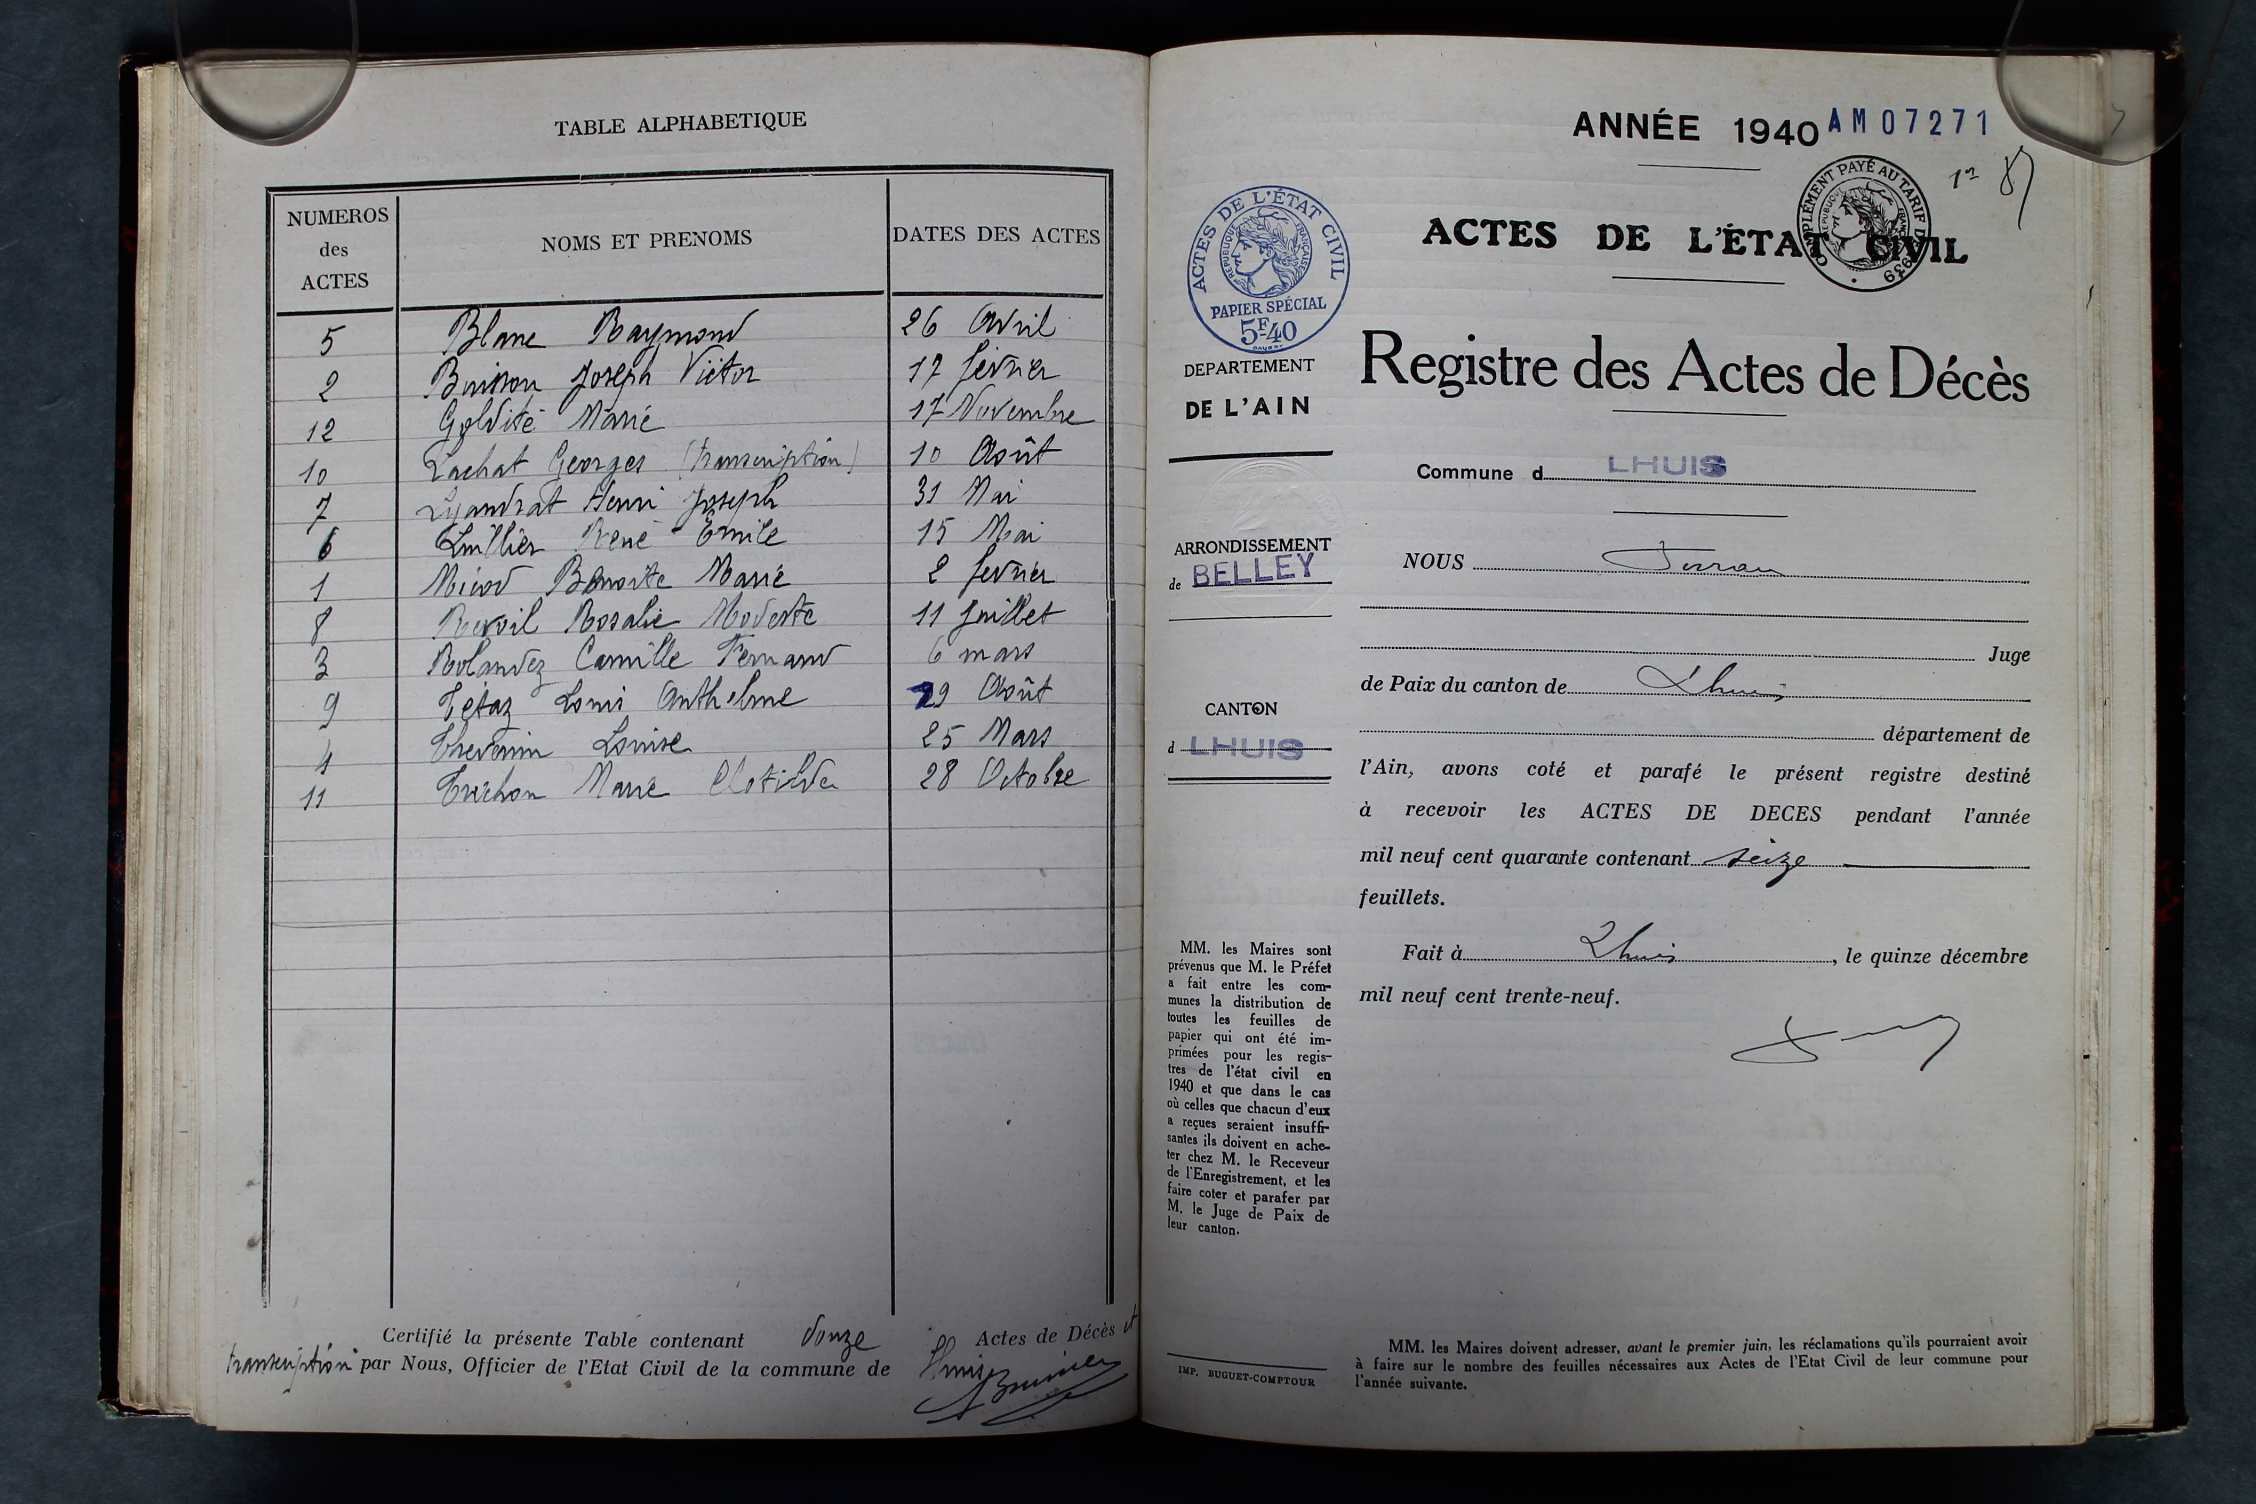 TABLE ALPHABETIQUE
NUMEROS des ACTES
NOMS ET PRENOMS
DATES DES ACTES
5 Blanc Raymond 26 Avril
2 Buisson Joseph Victor 17 février
12 Marie 17 Novembre
10 Lachat Georges (transcription) 10 Août
7 Henri Joseph 31 Mai
6 René Emile 15 Mai
1 Benoite Marie 2 février
8 Revoil Rosalie Modeste 11 Juillet
3 Rolandez Camille Fernand 6 mars
9 Tétaz Louis Anthelme 29 Août
4 Thevenin Louise 25 Mars
11 Truchon Marie Clotilde 28 Octobre
Certifié la présente Table contenant douze Actes de Décès et
transcription par Nous, Officier de l'Etat Civil de la commune de Lhuis
ANNÉE 1940 AM07271
ACTES DE L'ÉTAT CIVIL
COMPLÉMENT PAYÉ AU TARIF DE 1939
ACTES DE L'ÉTAT CIVIL
RÉPUBLIQUE FRANÇAISE
PAPIER SPÉCIAL
5F40
DEPARTEMENT
DE L'AIN
ARRONDISSEMENT
de BELLEY
CANTON
d LHUIS
MM. les Maires sont
prévenus que M. le Préfet
a fait entre les com-
munes la distribution de
toutes les feuilles de
papier qui ont été im-
primées pour les regis-
tres de l'état civil en
1940 et que dans le cas
où celles que chacun d'eux
a reçues seraient insuffi-
santes ils doivent en ache-
ter chez M. le Receveur
de l'Enregistrement, et les
faire coter et parafer par
M. le Juge de Paix de
leur canton.
IMP. BUGUET-COMPTOUR
Registre des Actes de Décès
Commune d LHUIS
NOUS
Juge
de Paix du canton de Lhuis
département de
l'Ain, avons coté et parafé le présent registre destiné
à recevoir les ACTES DE DECES pendant l'année
mil neuf cent quarante contenant seize
feuillets.
Fait à Lhuis, le quinze décembre
mil neuf cent trente-neuf.
MM. les Maires doivent adresser, avant le premier juin, les réclamations qu'ils pourraient avoir
à faire sur le nombre des feuilles nécessaires aux Actes de l'Etat Civil de leur commune pour
l'année suivante.